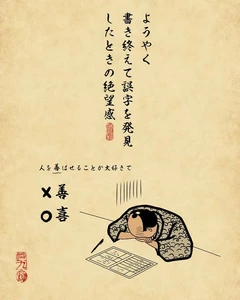 ようやく
書き終えて誤字を発見
したときの絶望感
人を善ばせることが大好きで
× 善
○ 喜